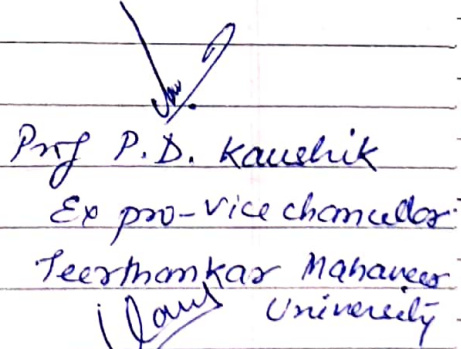 Prof P.D. Kaushik
Ex pro-vice chancellor
Teerthankar Mahaveer
University